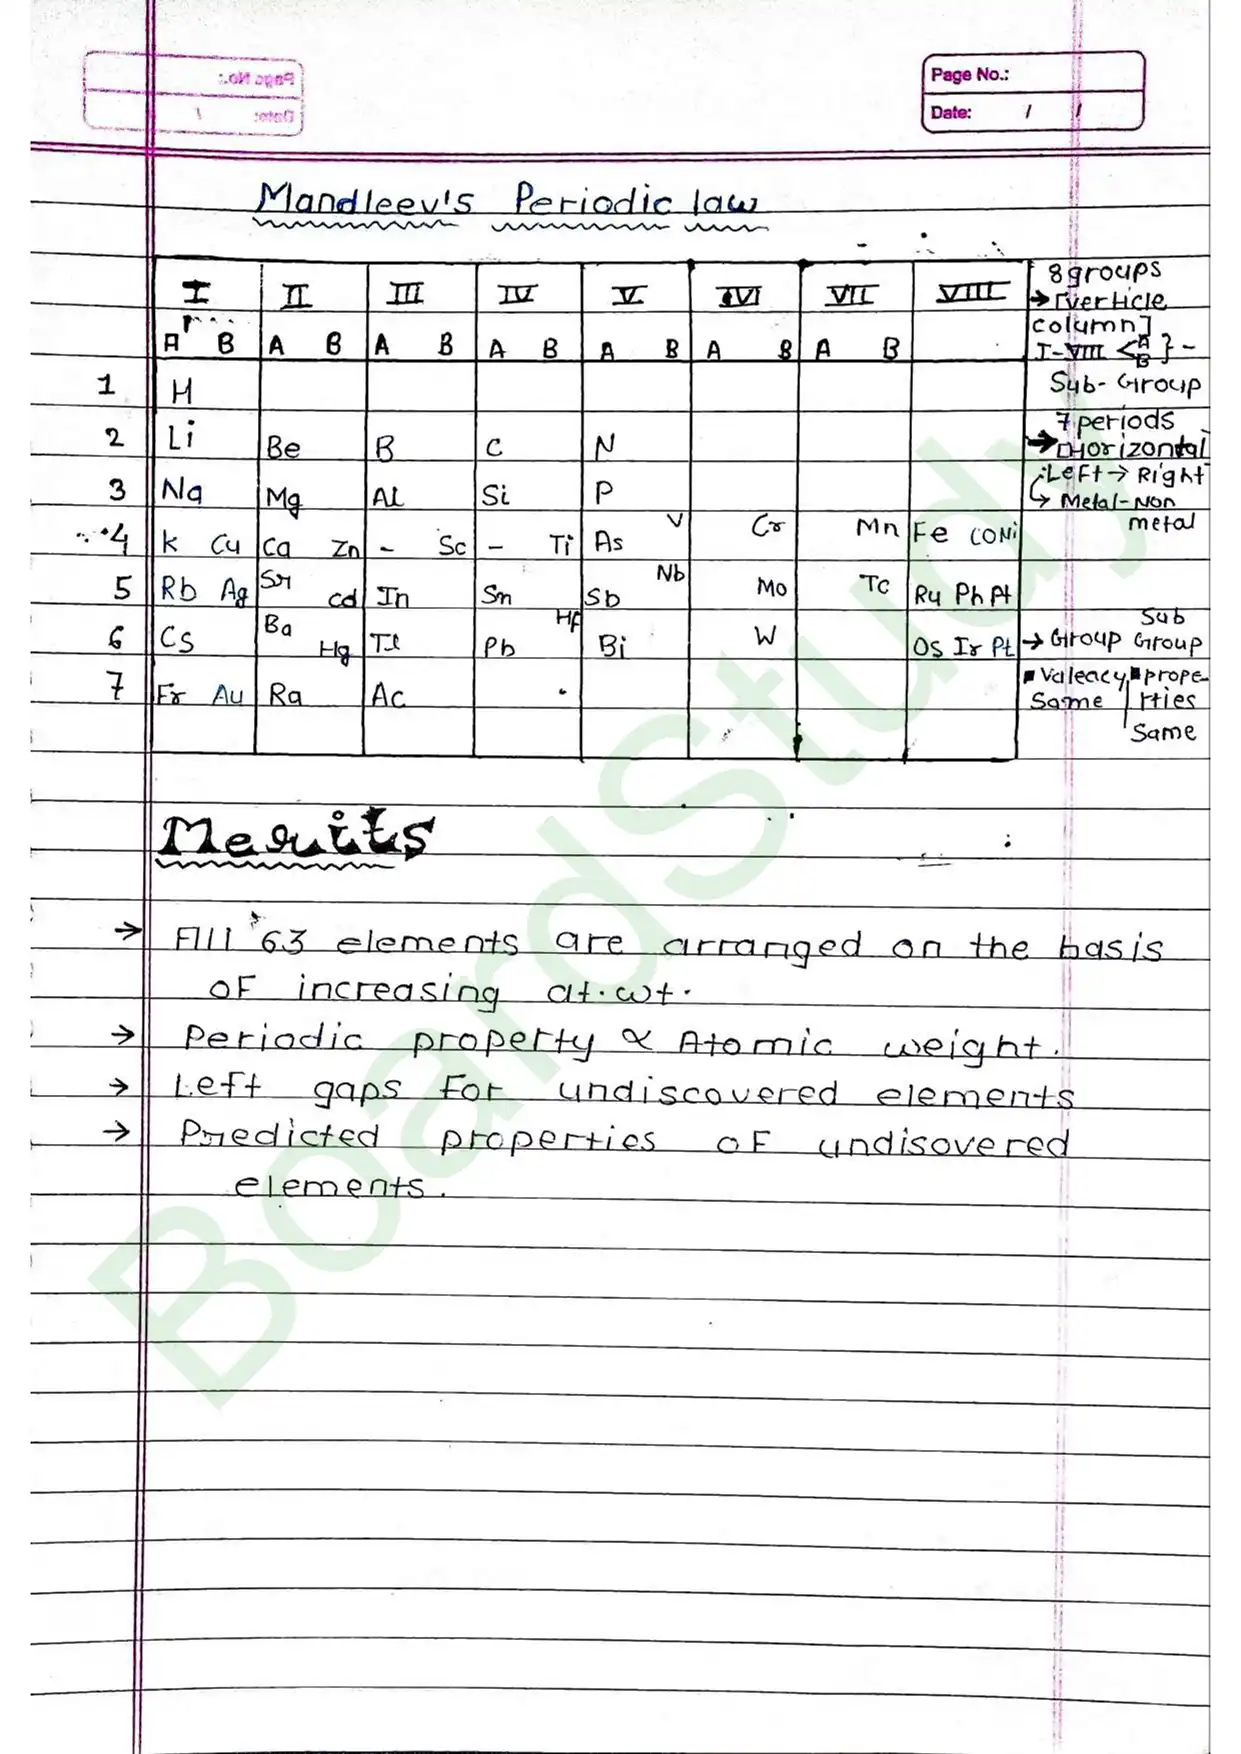 Page No.:
Date: / /
Mandleev's Periodic law
I II III IV V VI VII VIII
A B A B A B A B A B A B A B
8 groups
→ [verticle
column]
I-VIII < A B } -
Sub-Group
1 H
2 Li Be B C N
7 periods
→ [Horizontal
3 Na Mg Al Si P
Left → Right
↳ Metal-Non
metal
4 K Cu Ca Zn - Sc - Ti As V Cr Mn Fe CO Ni
5 Rb Ag Sr Cd In Sn Sb Nb Mo Tc Ru Ph Pt
6 Cs Ba Hg Tl Pb Hf Bi W Os Ir Pt
→ Group Sub Group
7 Fr Au Ra Ac
▪ Valeacy Same
▪ prope-
rties
Same
Merits
→ All 63 elements are arranged on the basis
of increasing at. wt.
→ Periodic property ∝ Atomic weight.
→ Left gaps for undiscovered elements
→ Predicted properties of undisovered
elements.
BoardStudy